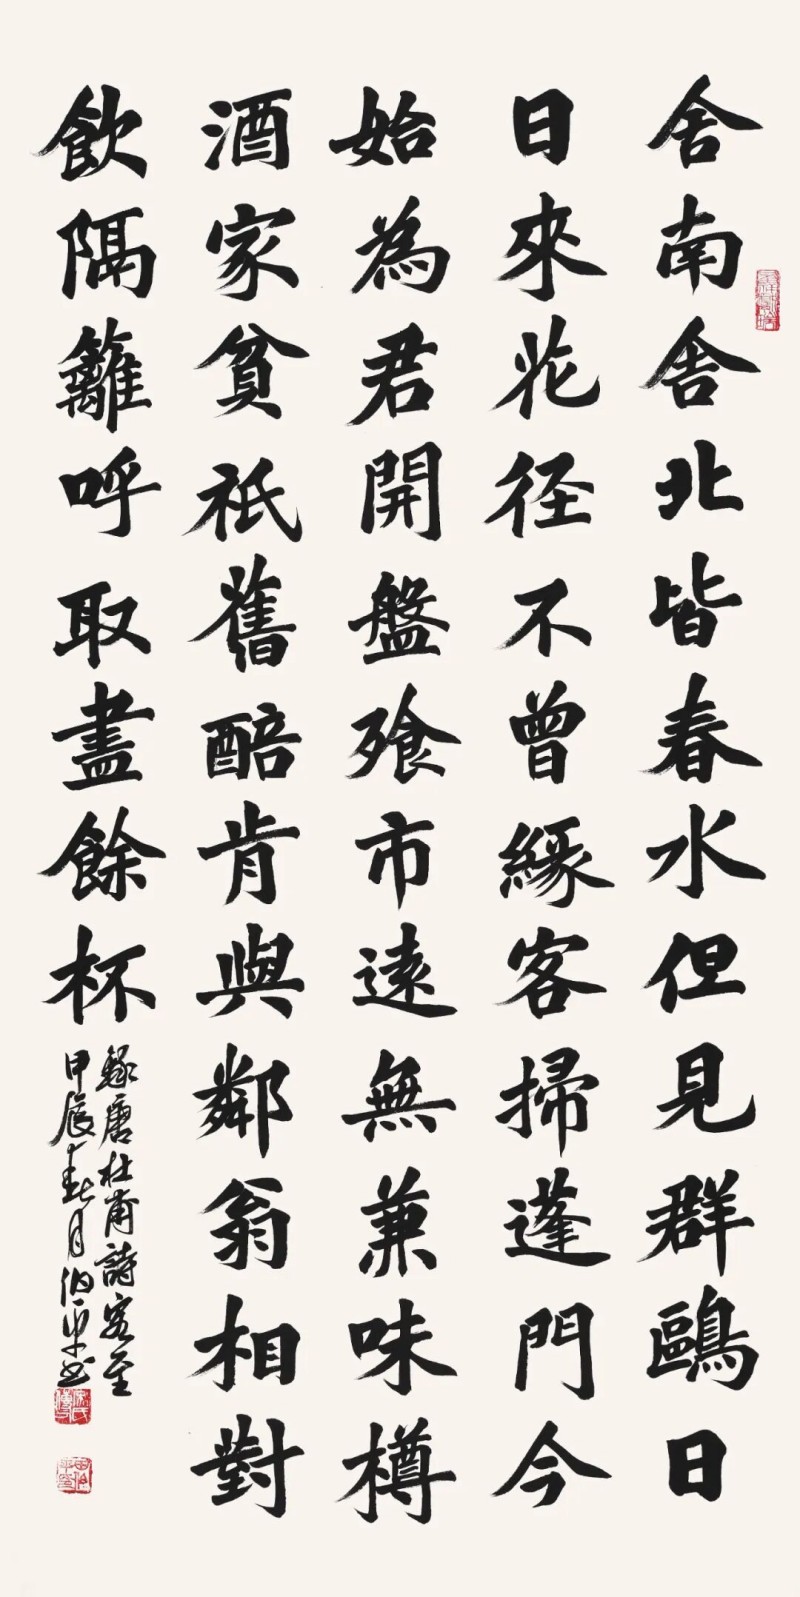 舍南舍北皆春水但見群鷗日
日來花径不曾緣客掃蓬門今
始為君開盤飱市遠無兼味樽
酒家貧祇舊醅肯與鄰翁相對
飲隔籬呼取盡餘杯
錄唐杜甫詩客至
甲辰春月伯平書